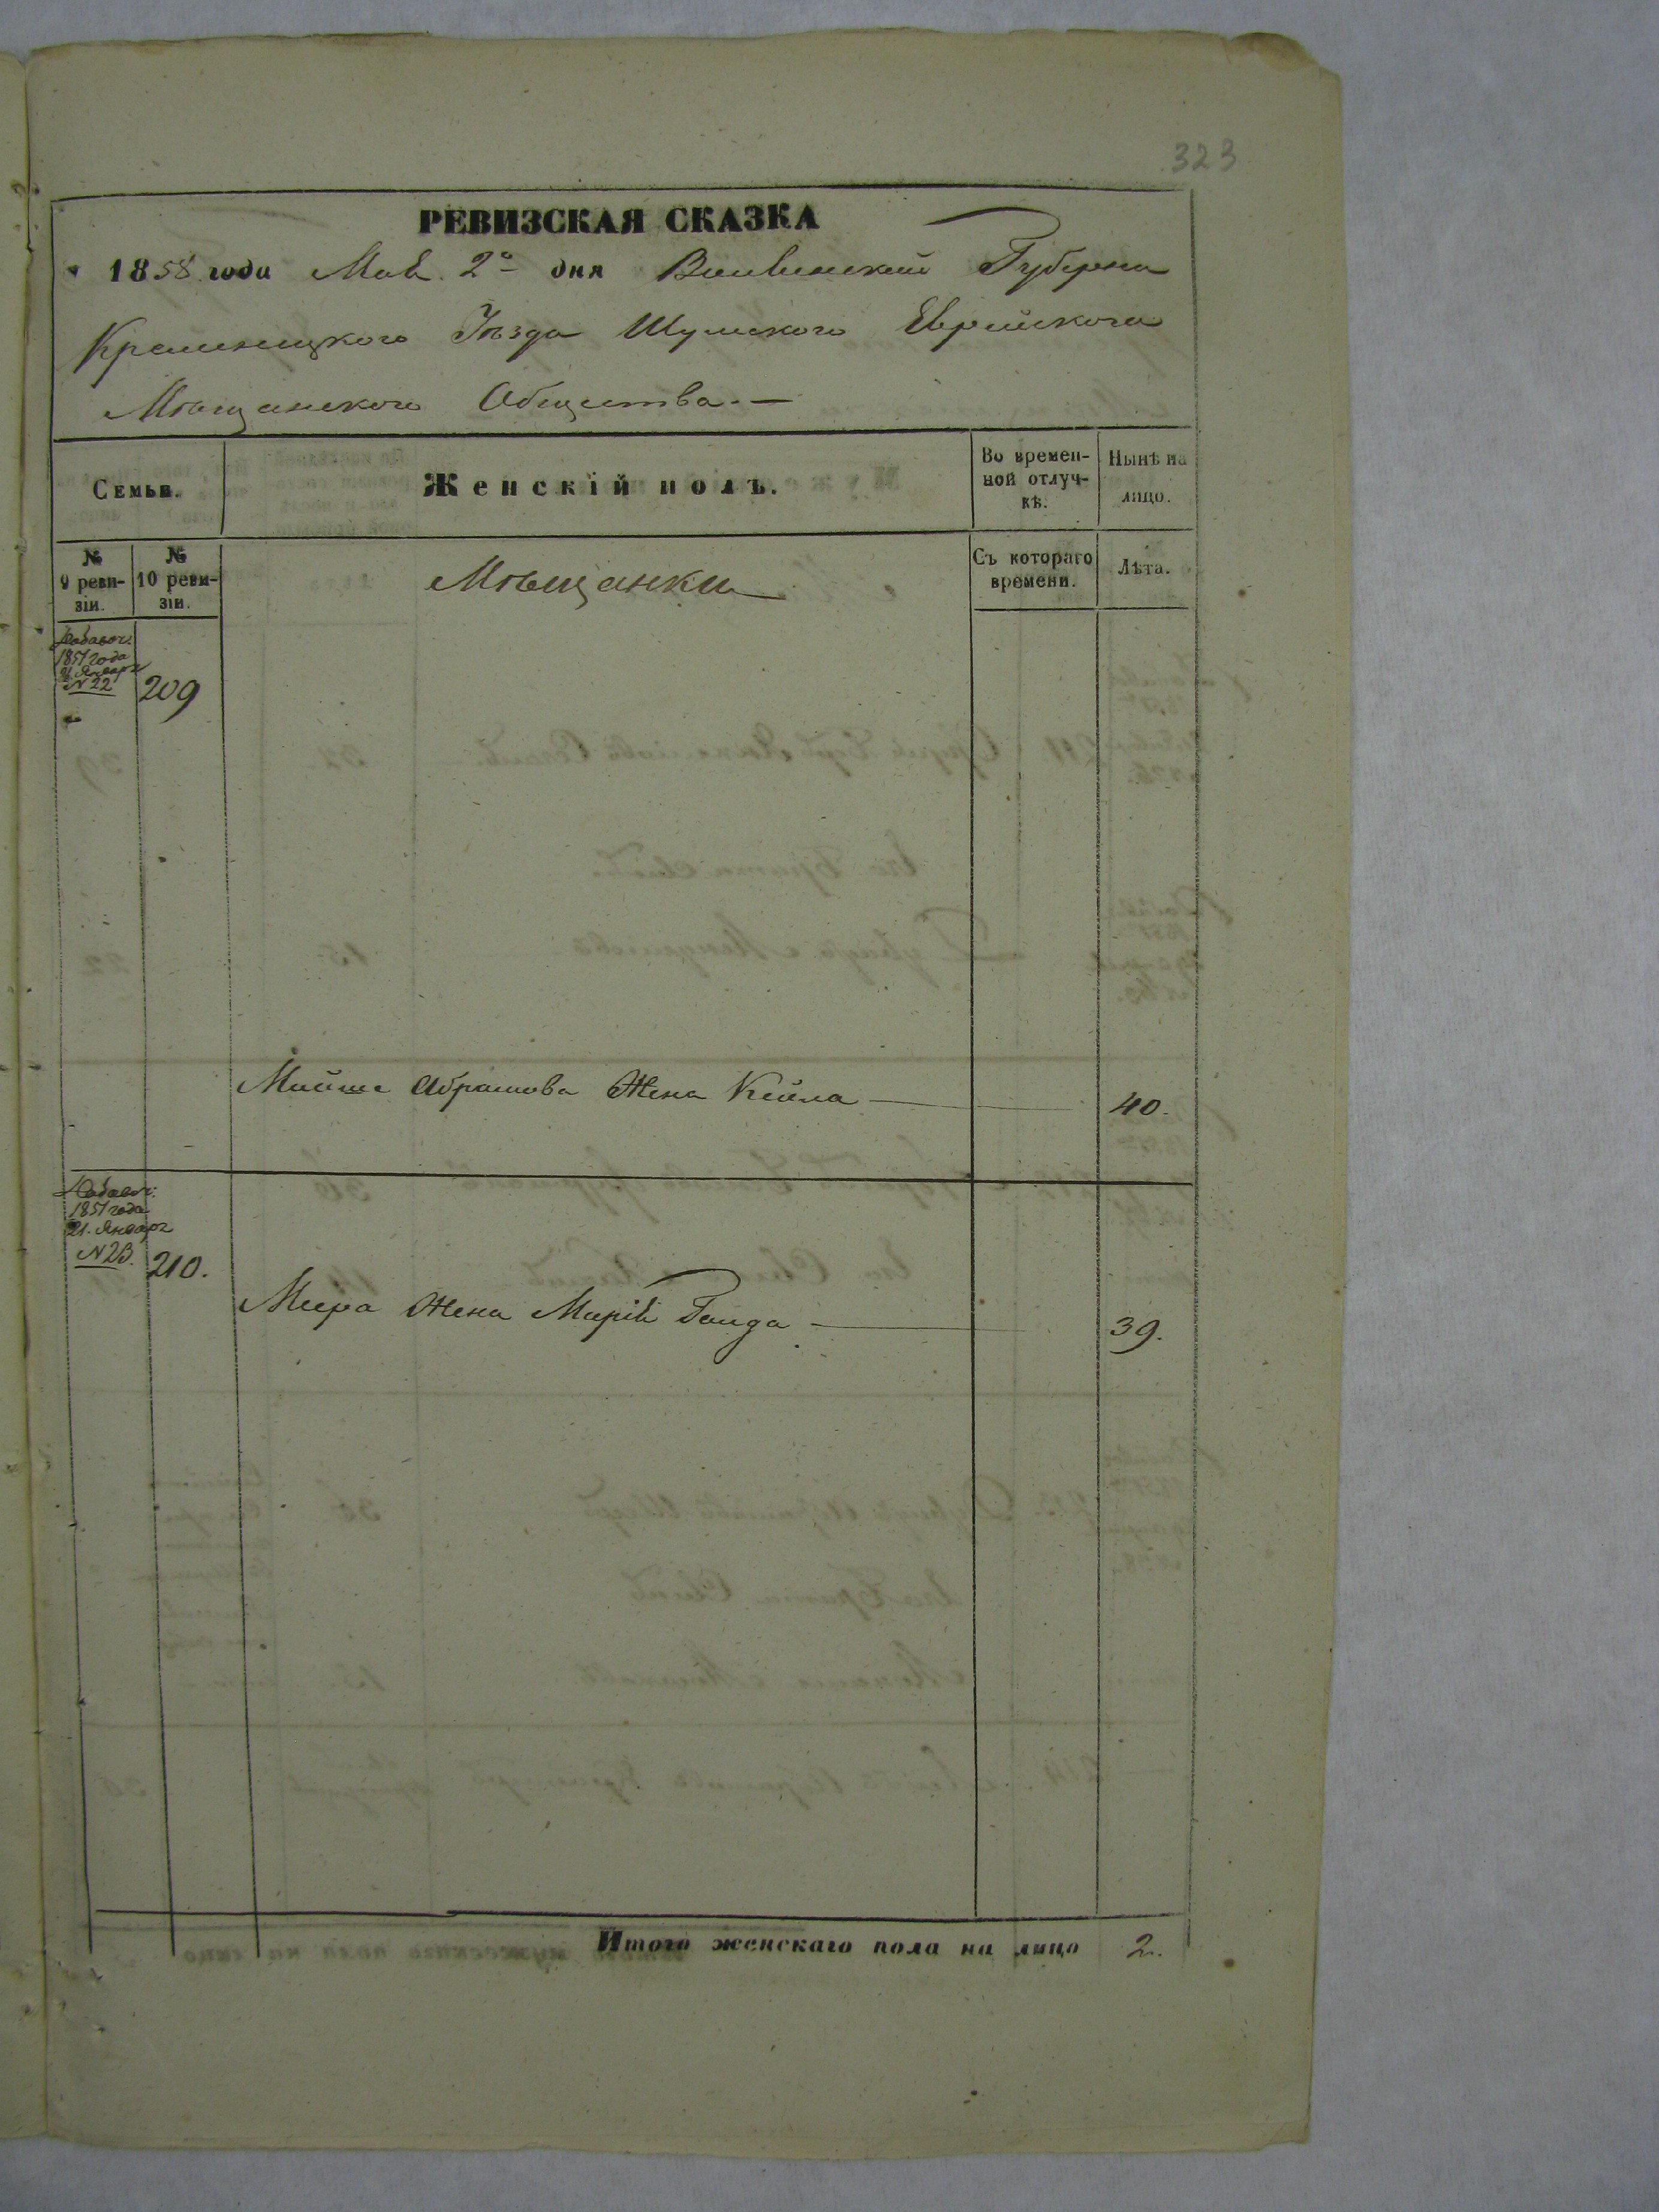 323
РЕВИЗСКАЯ СКАЗКА
1858 года Мая 2го дня Волынской Губернии
Кременецкого Уѣзда Шумского Еврейского
Мѣщанского Общества.—
Семьи.
Женскій полъ.
Во времен-
ной отлуч-
кѣ.
Нынѣ на
лицо.
№
9 реви-
зіи.
№
10 реви-
зіи.
Мѣщанки
Съ котораго
времени.
Лѣта.
Добавоч:
1851 года
21. Января
N 22
209
Мойше Абрамова Жена Кейла — 40.
Добавоч:
1851 года
21. Января
N 23.
210.
Меера Жена Гольда — 39.
Итого женскаго пола на лицо 2.